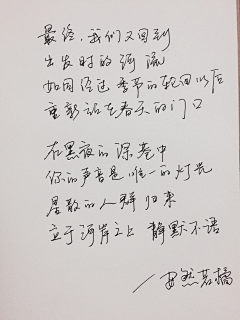 最终，我们又回到
出发时的河流
如同经过季节的轮回以后
重新站在春天的门口
在黑夜的深巷中
你的声音是唯一的灯光
星散的人群归来
立于河岸之上 静默不语
/安然若橘